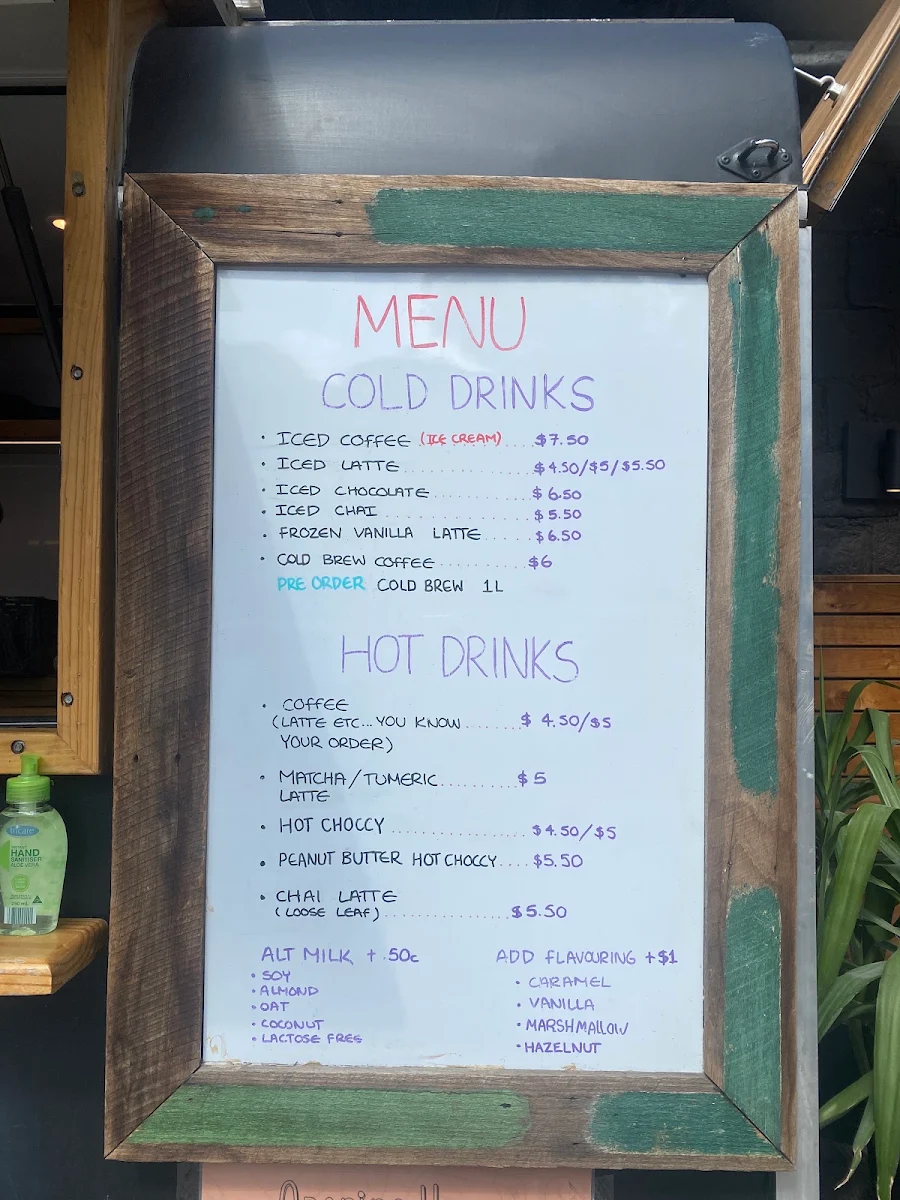 MENU
COLD DRINKS
• ICED COFFEE (ICE CREAM) .... $7.50
• ICED LATTE .............. $4.50/$5/$5.50
• ICED CHOCOLATE .......... $6.50
• ICED CHAI ............... $5.50
• FROZEN VANILLA LATTE ...... $6.50
• COLD BREW COFFEE .......... $6
PRE ORDER COLD BREW 1L
HOT DRINKS
• COFFEE
(LATTE ETC... YOU KNOW ....... $4.50/$5
YOUR ORDER)
• MATCHA/TUMERIC .......... $5
LATTE
• HOT CHOCCY ................ $4.50/$5
• PEANUT BUTTER HOT CHOCCY .... $5.50
• CHAI LATTE
(LOOSE LEAF) ................ $5.50
ALT MILK + .50c
• SOY
• ALMOND
• OAT
• COCONUT
• LACTOSE FREE
ADD FLAVOURING +$1
• CARAMEL
• VANILLA
• MARSHMALLOW
• HAZELNUT
HAND
SANITISER
ALOE VERA